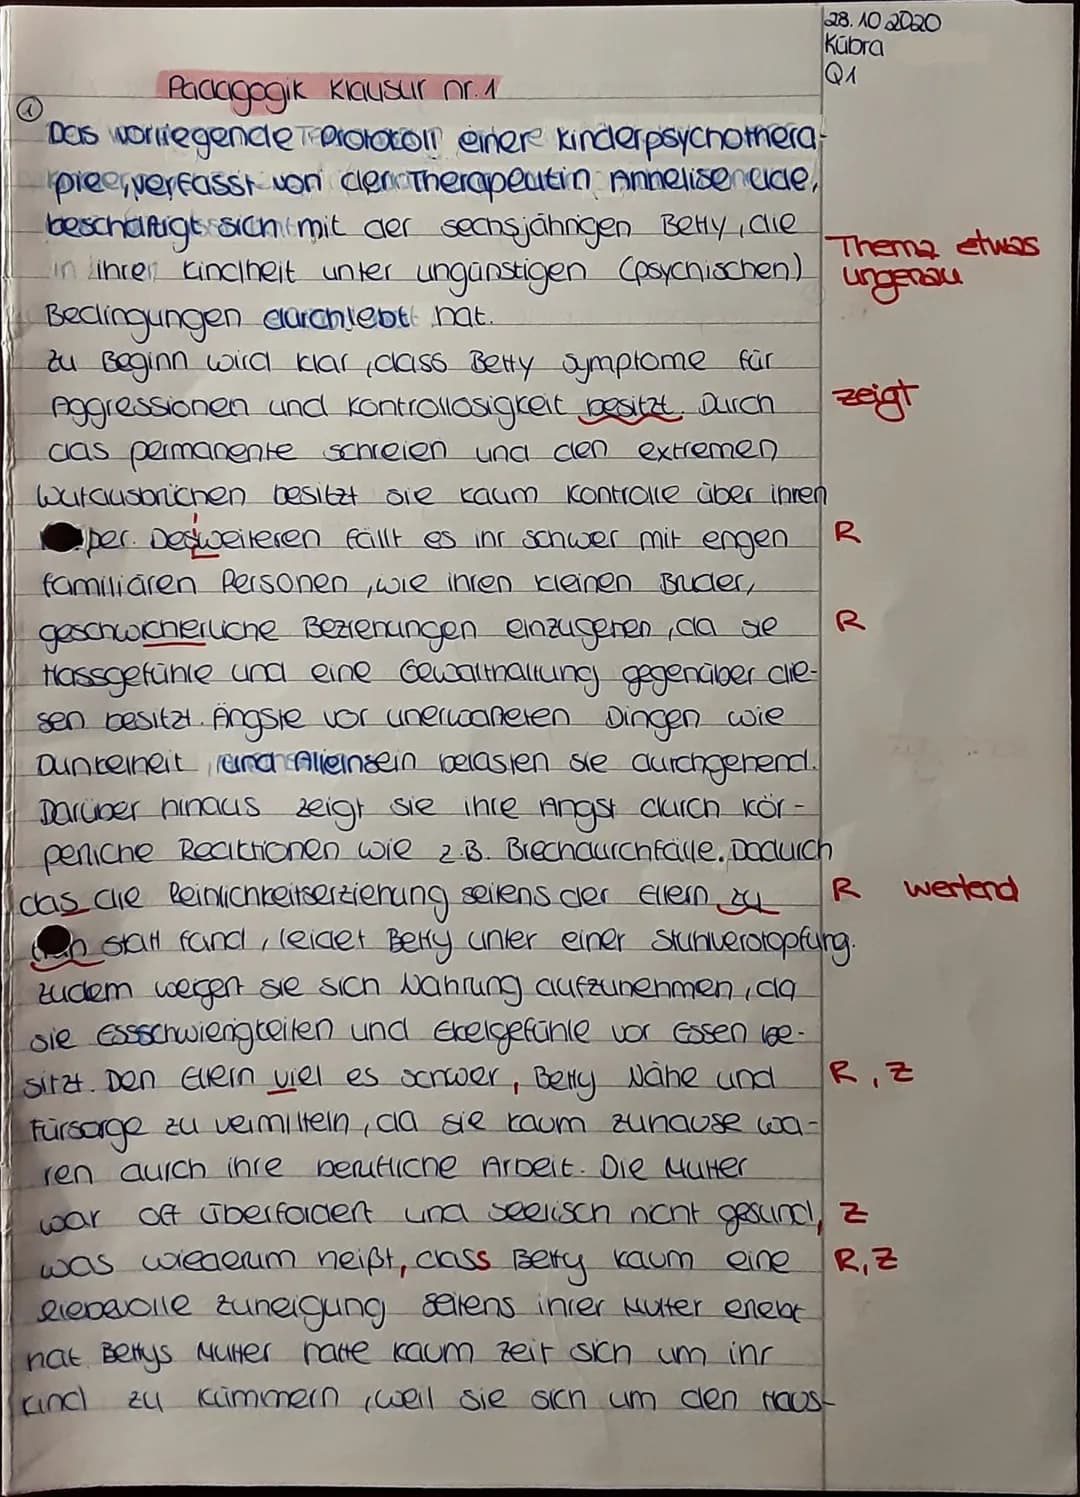 28.10.2020
Kübra
Q1
Pädagogik Klausur nr. 1
①
Das vorliegende Protokoll einer kinderpsychothera-
pie, verfasst von der Therapeutin Annelise Ude,
beschäftigt sich mit der sechsjährigen Betty, die
in ihrer Kindheit unter ungünstigen (psychischen)
Bedingungen durchlebt hat.
Thema etwas
ungenau
Zu Beginn wird klar, dass Betty Symptome für
Aggressionen und Kontrollosigkeit besitzt. Durch
zeigt
das permanente schreien und den extremen
Wutausbrüchen besitzt sie kaum Kontrolle über ihren
per. Desweiteren fällt es ihr schwer mit engen
R
familiären Personen, wie ihren kleinen Bruder,
geschwicherliche Beziehungen einzugehen, da sie
R
Hassgefühle und eine Gewalthaltung gegenüber die-
sen besitzt. Ängste vor unerwarteten Dingen wie
Dunkelheit und Alleinsein belasten sie durchgehend.
Darüber hinaus zeigt sie ihre Angst durch kör-
perliche Reaktionen wie z.B. Brechdurchfälle. Daduich
das die Reinlichkeitserziehung seitens der Eltern zu
R wertend
statt fand, leidet Betty unter einer Stuhlverstopfung.
Zudem wegert sie sich Nahrung aufzunehmen, da
sie Essschwierigkeiten und Ekelgefühle vor Essen be-
sitzt. Den Eltern viel es schwer, Betty Nähe und
R, Z
Fürsorge zu vermitteln, da sie kaum zuhause wa-
ren durch ihre berufliche Arbeit. Die Mutter
war oft überfordert und seelisch nicht gesund,
Z
was wiederum heißt, dass Betty kaum eine
R, Z
liebevolle Zuneigung seitens ihrer Mutter erlebt
hat. Bettys Mutter hatte kaum Zeit sich um ihr
Kind zu kümmern, weil sie sich um den Haus-